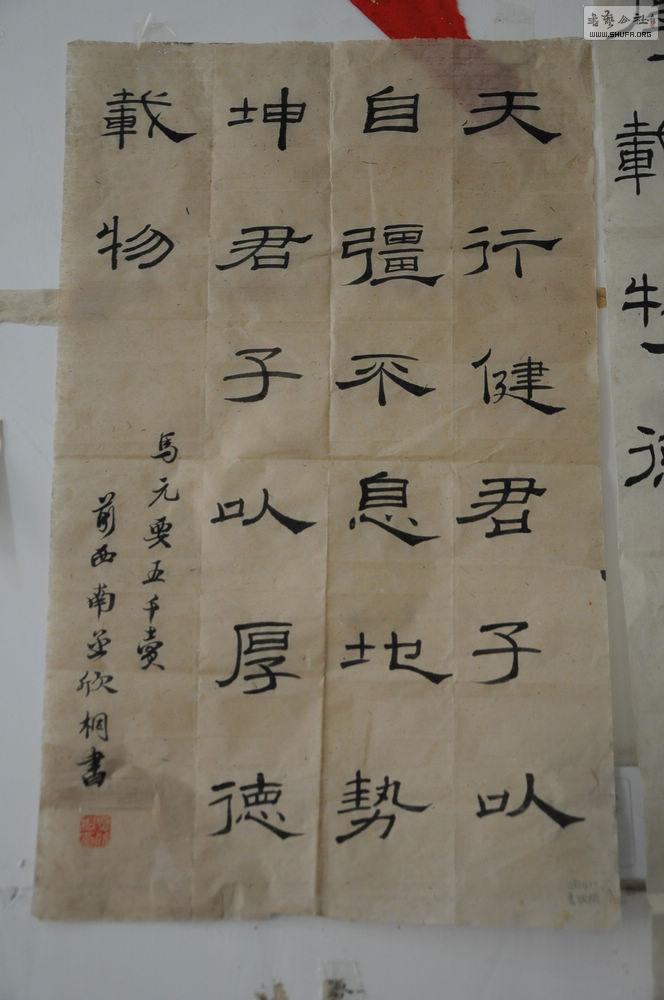 天行健君子以
自彊不息地势
坤君子以厚德
載物
馬元要五千賣
南
欣桐書
載物
德
書藝公社
WWW.SHUFA.ORG